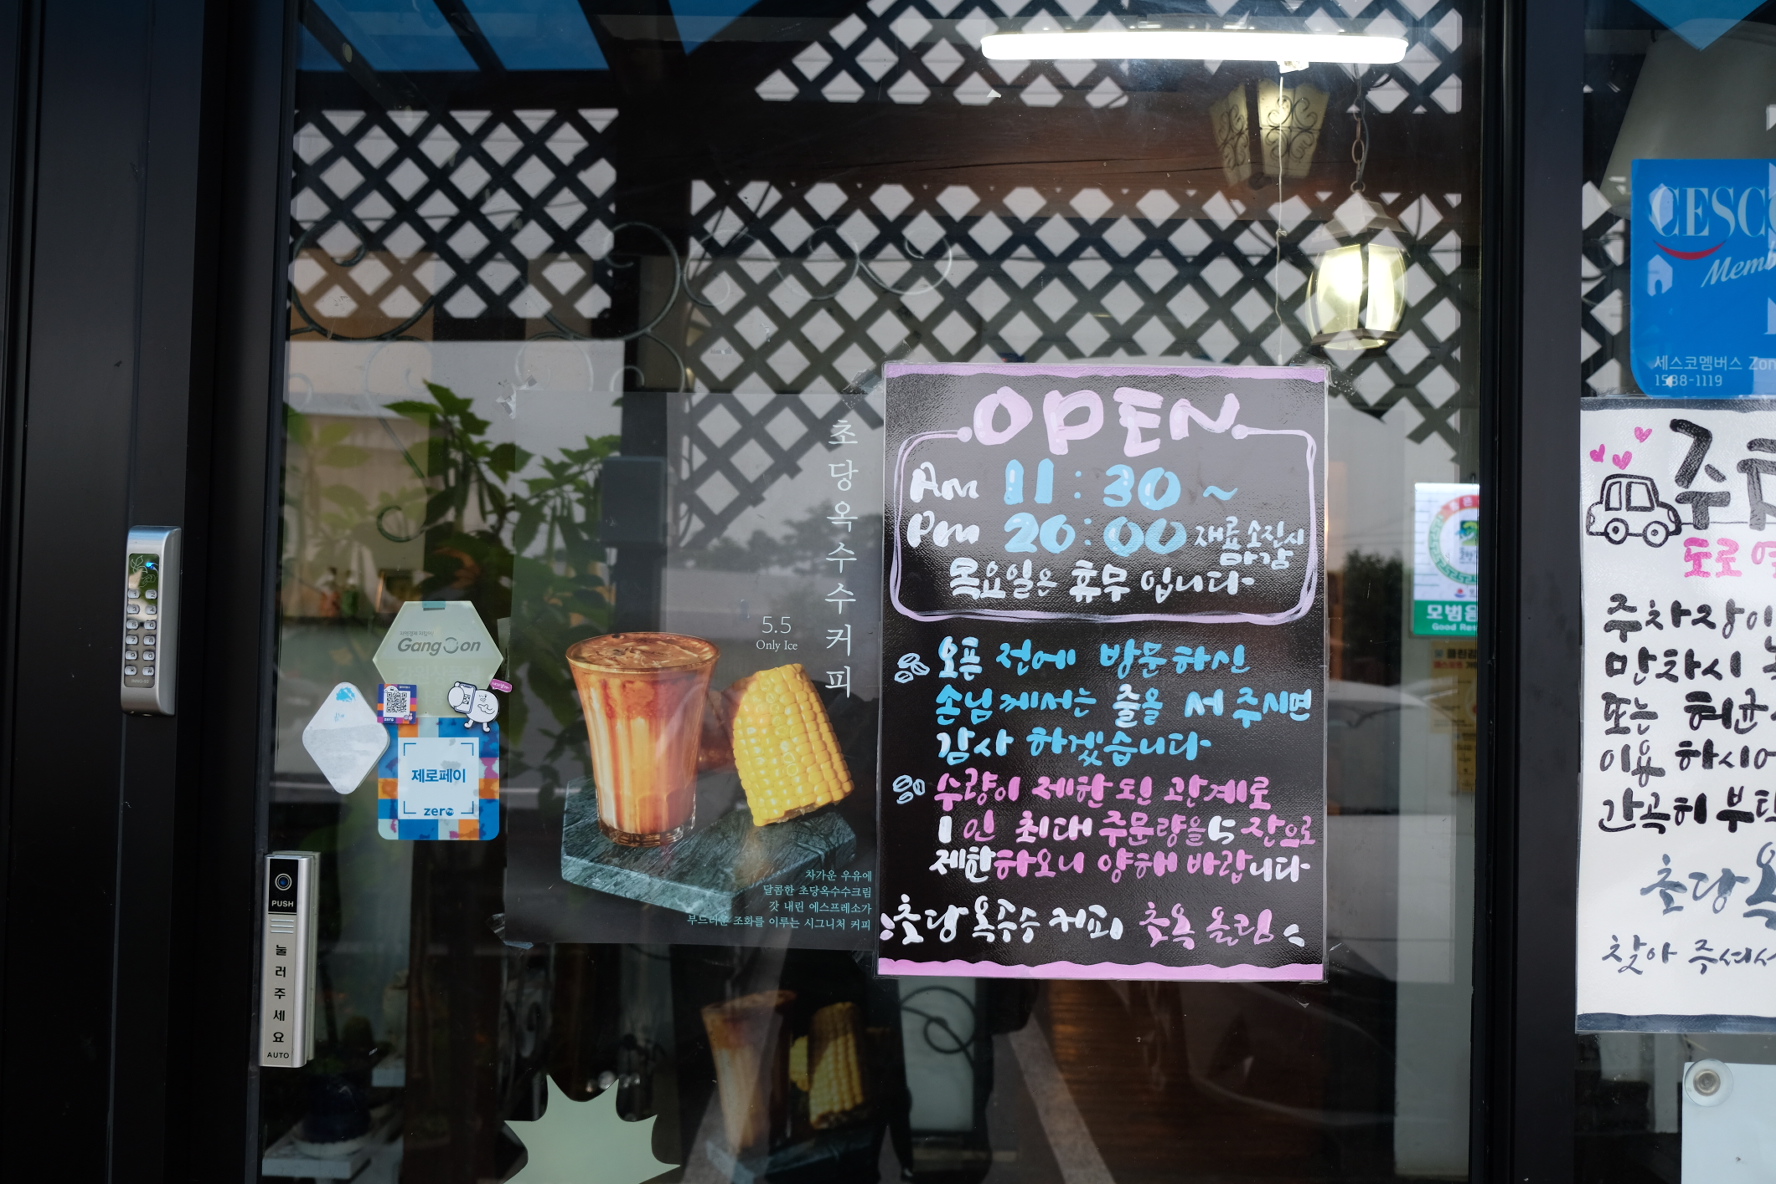 CESCO
세스코멤버스
1588-1119
초당옥수수커피
5.5
Only Ice
차가운 우유에
달콤한 초당옥수수크림
갓 내린 에스프레소가
부드러운 조화를 이루는 시그니처 커피
OPEN
Am 11:30 ~
Pm 20:00 재료소진시 마감
목요일은 휴무 입니다
오픈 전에 방문하신
손님께서는 줄을 서 주시면
감사 하겠습니다
수량이 제한된 관계로
1인 최대 주문량을 5잔으로
제한하오니 양해 바랍니다
초당옥수수 커피 촛옥 올림
GangOon
제로페이
zero
PUSH
눌러주세요
AUTO
모범음
도로
주차장이
만차시
또는
이용 하시어
간곡히 부탁
초당옥
찾아 주셔서